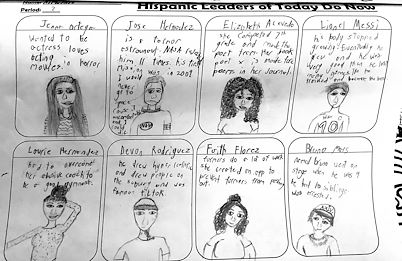 Hispanic Leaders of Today Do Now
Period:
Jenna Ortega
Wanted to be
actress loves
acting
movies in horror
Jose Hernandez
is a former
astronaut NASA
him 11 times his
was in 2009
I would
never
go to
space
cause
and I
could
Elizabeth Acevedo
she completed 7th
grade and read the
poet from her book
poet x is made
poems in her Journal.
Lionel Messi
his body stopped
growing. Eventually he
grew and he was
very good then he
and became the best
Laurie Hernandez
had to overcome
her abusive coach to
be a good gymnast.
Devon Rodriguez
he drew hyper realism
and drew people on
the subway and was
famous tiktok.
Faith Florez
farmers do a lot of work
she created an app to
prevent farmers from
out.
Bruno Mars
on
stage when he was 4
he had 6 siblings
was arrested.